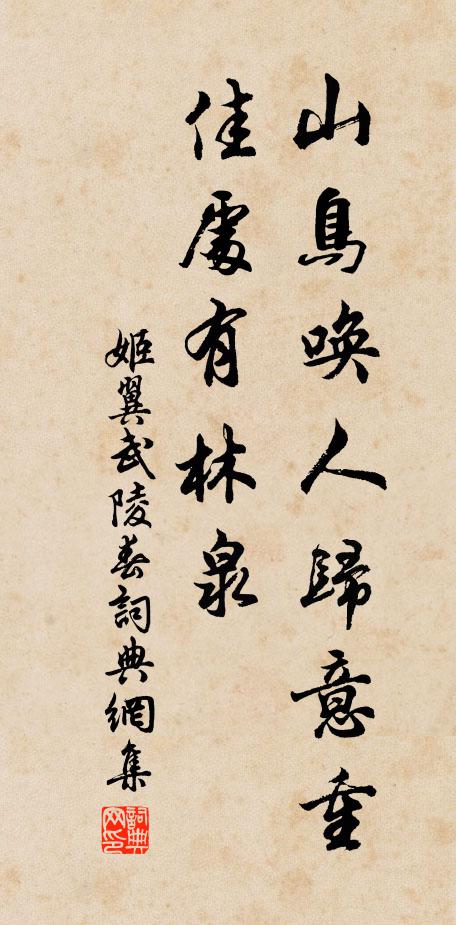 山鳥喚人歸意重
佳處有林泉
姬翼武陵春詞典網集
詞典网印